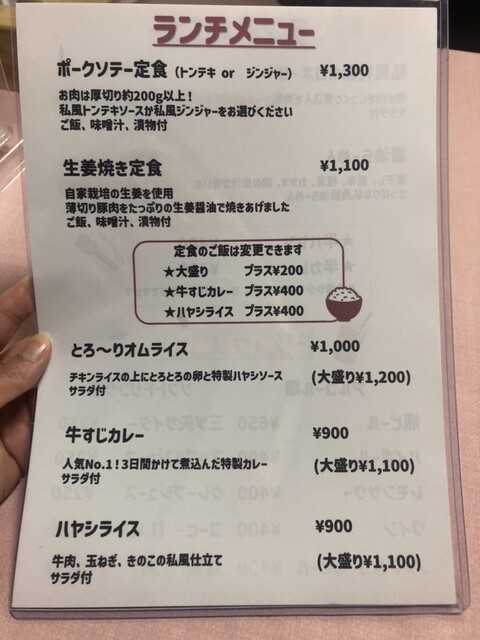 ランチメニュー
ポークソテー定食（トンテキ or ジンジャー） ¥1,300
お肉は厚切り約200g以上！
私風トンテキソースか私風ジンジャーをお選びください
ご飯、味噌汁、漬物付
生姜焼き定食 ¥1,100
自家栽培の生姜を使用
薄切り豚肉をたっぷりの生姜醤油で焼きあげました
ご飯、味噌汁、漬物付
定食のご飯は変更できます
★大盛り プラス¥200
★牛すじカレー プラス¥400
★ハヤシライス プラス¥400
とろ～りオムライス ¥1,000
チキンライスの上にとろとろの卵と特製ハヤシソース (大盛り¥1,200)
サラダ付
牛すじカレー ¥900
人気No.1！3日間かけて煮込んだ特製カレー (大盛り¥1,100)
サラダ付
ハヤシライス ¥900
牛肉、玉ねぎ、きのこの私風仕立て (大盛り¥1,100)
サラダ付